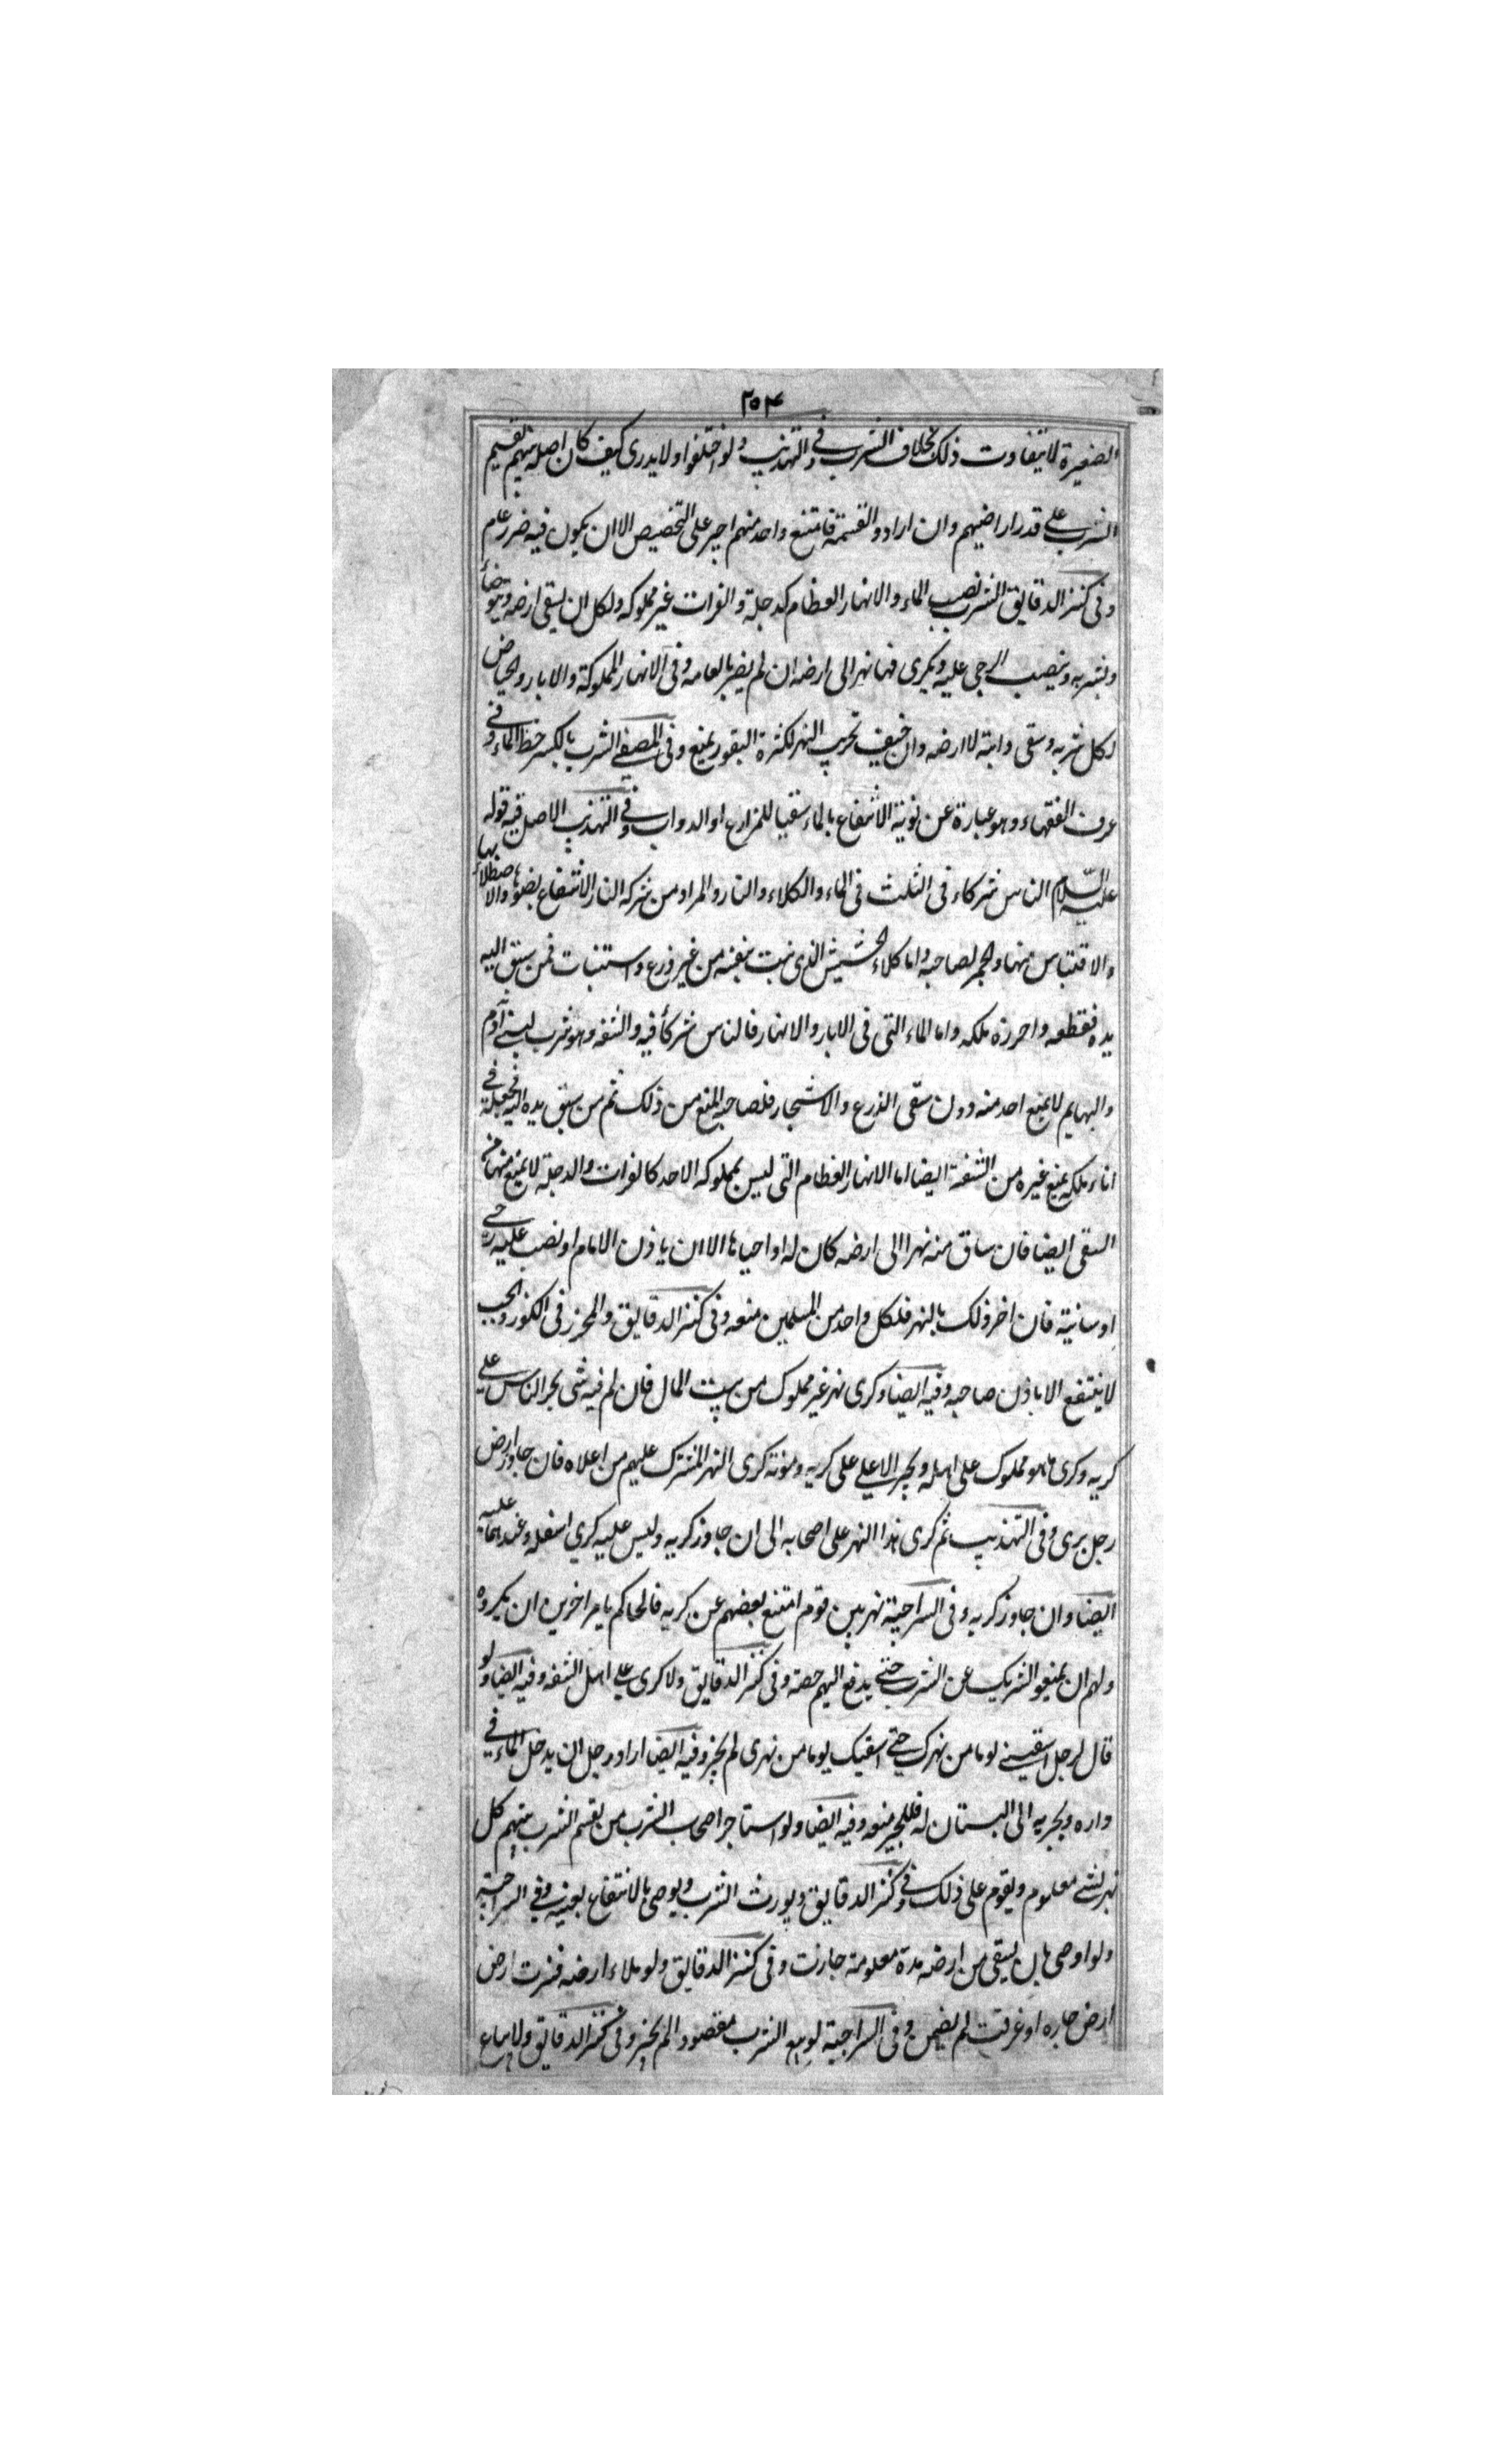 ٢٥٤
الصغيرة لا يتفاوت ذلك بخلاف الشرب وفي التهذيب ولو اختلفوا ولا يدرى كيف كان اصله بينهم تقسيم
الشرب على قدر اراضيهم وان ارادو القسمة فامتنع واحد منهم اجبر على التخصيص الا ان يكون فيه ضرر عام
وفى كنز الدقايق الشرب نصيب الماء والانهار العظام كدجلة والفرات غير مملوكه ولكل ان يسقى ارضه ويتوضأ
ويشربه وينصب الرحى عليه ويكرى منها نهرا الى ارضه ان لم يضر بالعامه وفى الانهار المملوكة والابار والحياض
لكل شربه وسقى دابته لا ارضه وان خيف تخريب النهر لكثرة البقور يمنع وفى المصفى الشرب بالكسر حظ الماء وفى
عرف الفقهاء وهو عبارة عن نوبة الانتفاع بالماء سقيا للمزارع او الدواب وفى التهذيب الاصل فيه قوله
عليه السلام الناس شركاء فى الثلث فى الماء والكلاء والنار والمراد من شركه النار الانتفاع بضوئها والاصطلاء بها
والاقتباس منها والجمر لصاحبه واما كلاء الحشيش الذى نبت بنفسه من غير زرع واستنبات فمن سبق اليه
يده فقطعه واحرزه ملكه واما الماء التى فى الابار والانهار فالناس شركأ فيه والشفه وهو شرب لبنى آدم
والبهايم لا يمنع احد منه دون سقى الذرع والاشجار فلصاحبه المنع من ذلك ثم من سبق يده اليه فجعله فى
اناء ملكه يمنع غيره من الشفة ايضا اما الانهار العظام التى ليس بمملوكه الاحد كالفرات والدجلة لا يمنع منها من
السقى ايضا فان ساق منه نهرا الى ارضه كان له اواحياها الا ان ياذن الامام او نصب عليه رحى
او سانية فان اضر ذلك بالنهر فلكل واحد من المسلمين منعه وفى كنز الدقايق والمحرز فى الكنوز والجب
لا ينتفع الا باذن صاحبه وفيه ايضا وكرى نهر غير مملوك من بيت المال فان لم فيه شى يجبر الناس على
كريه وكرى ما هو مملوك على اهله ويجبر الاعلى على كريه ومونة كرى النهر المشترك عليهم من اعلاه فان جاوز ارض
رجل برى وفى التهذيب ثم كرى هذا النهر على اصحابه الى ان جاوز كريه وليس عليه كرى اسفله وعندهما عليه
ايضا وان جاوز كريه وفى السراجية نهر بين قوم امتنع بعضهم عن كريه فالحاكم يامر اخرين ان يكروه
ولهم ان يمنعوا الشريك عن الشرب حتى يدفع اليهم حصته وفى كنز الدقايق ولا كرى على اهل الشفه وفيه ايضا ولو
قال لرجل اسقينى يوما من نهرك حتى اسقيك يوما من نهرى لم يجز وفيه ايضا اراد رجل ان يدخل الماء فى
داره ويجريه الى البستان له فللجير منعه وفيه ايضا ولو استاجر اصحاب الشرب من يقسم الشرب بينهم كل
نهر بشى معلوم ويقوم على ذلك وفى كنز الدقايق ويورث الشرب ويوصى بالانتفاع بعينه وفى السراجية
ولو اوصى بان يسقى من ارضه مدة معلومة جازت وفى كنز الدقايق ولو ملاء ارضه فنزت ارض
ارض جاره او غرقت لم يضمن وفى السراجية لو بيع الشرب مقصودا لم يجز وفى كنز الدقايق ولا يباع